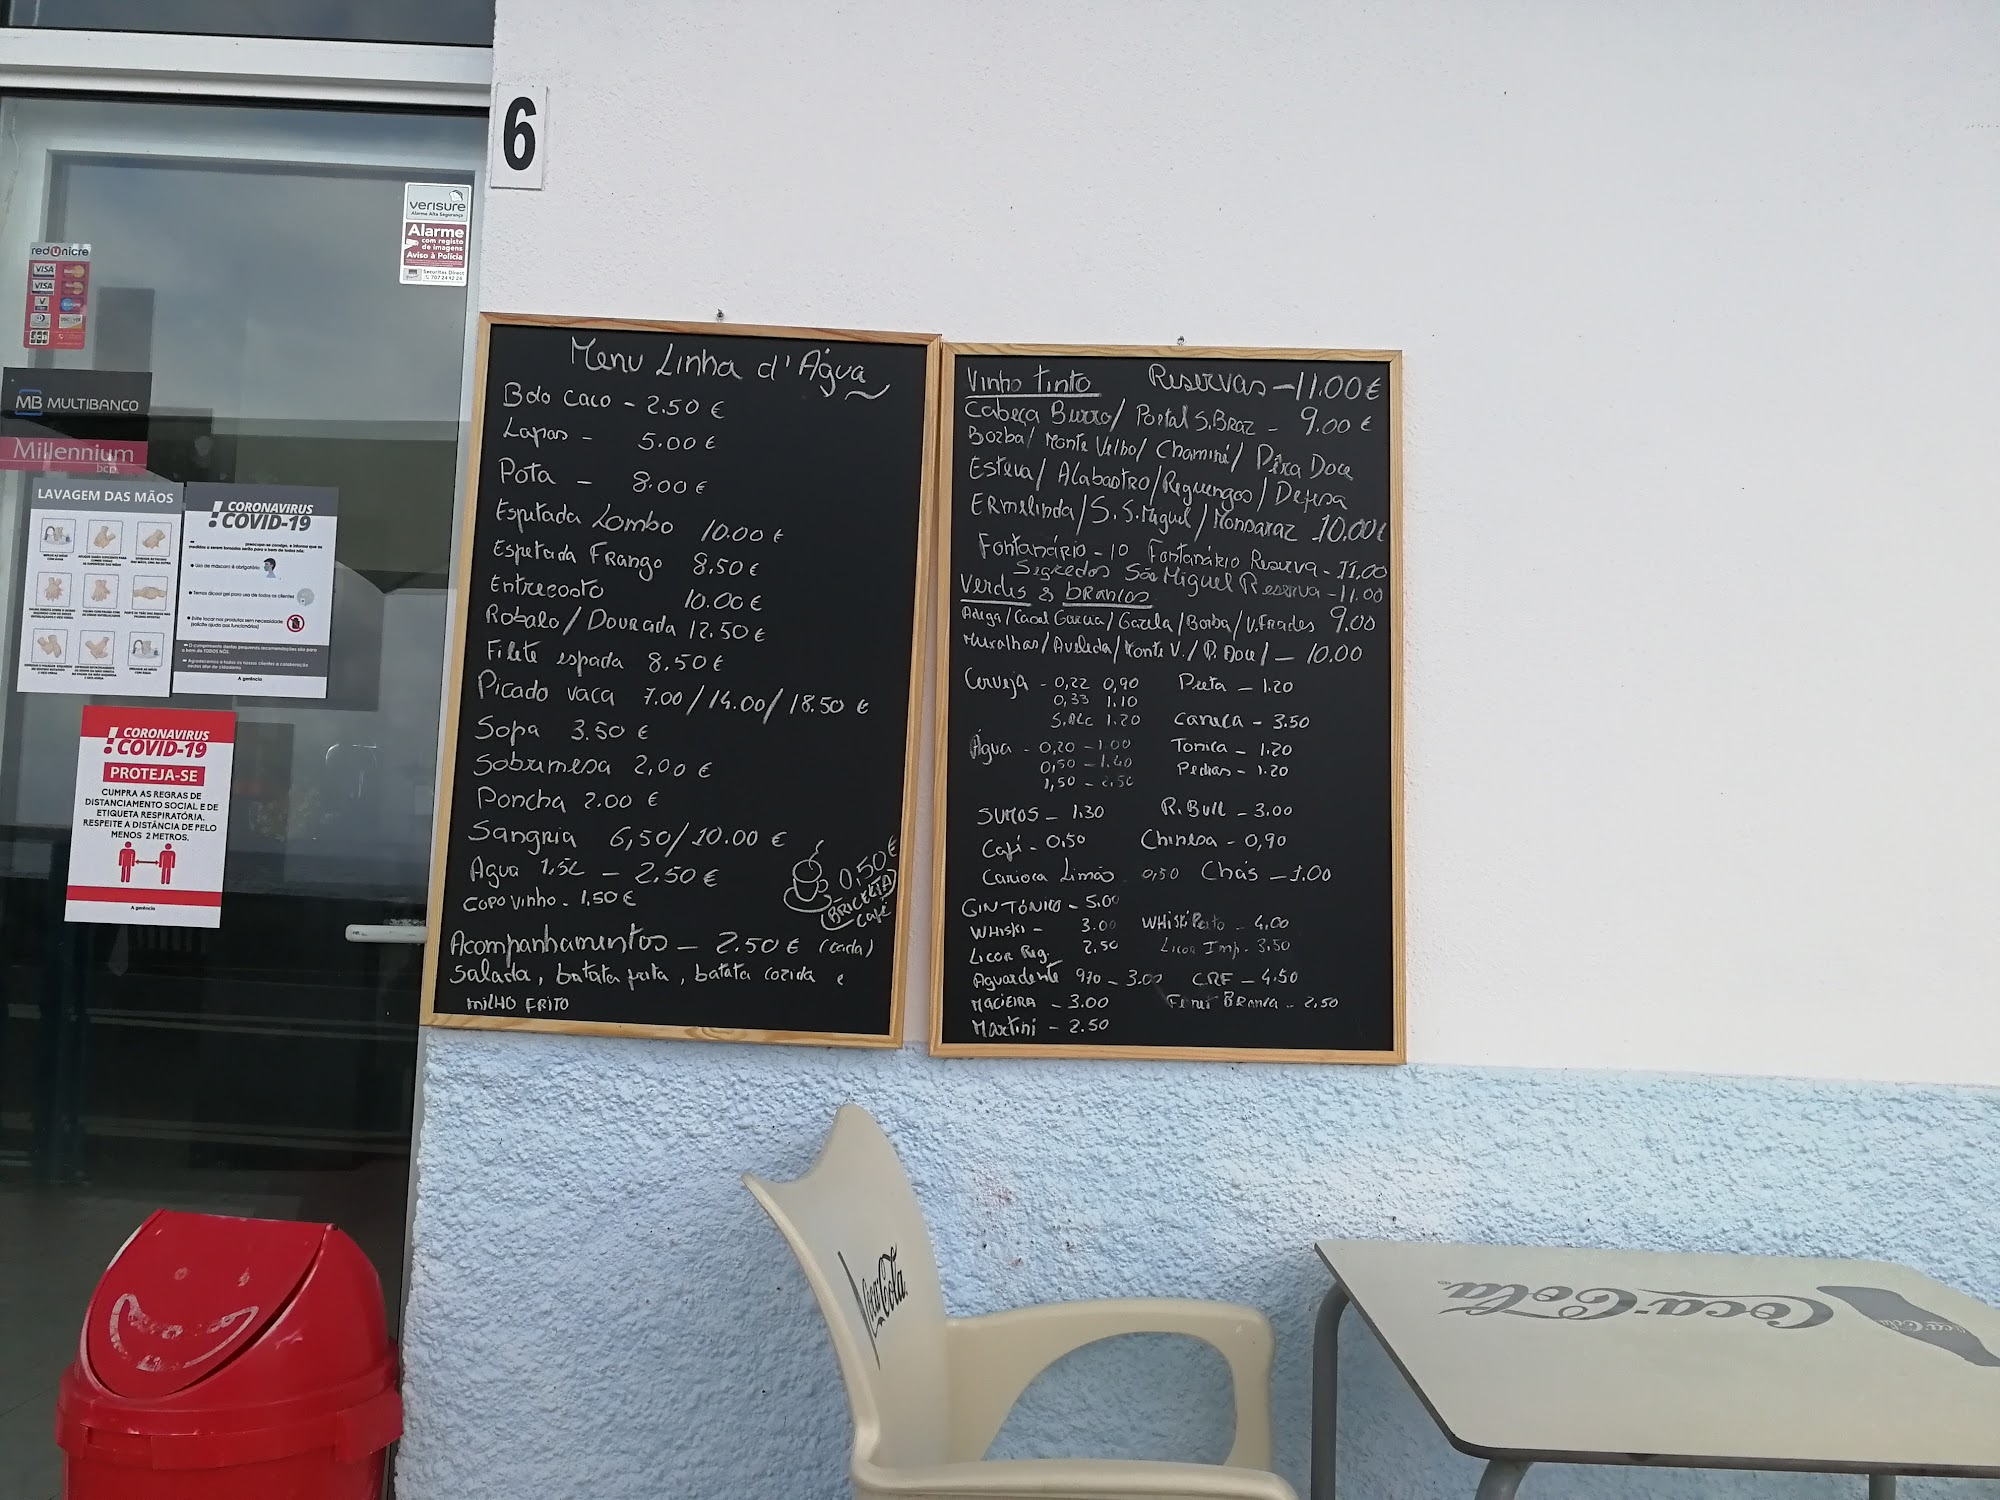 6
verisure
Alarme Alta Segurança
Alarme
com registo
de imagens
Aviso à Polícia
Securitas Direct
redUnicre
VISA
VISA
MB MULTIBANCO
Millennium
bcp
LAVAGEM DAS MÃOS
! CORONAVIRUS
COVID-19
Uso de máscara é obrigatório
Temos álcool gel para uso de todos os clientes
Evite tocar nos produtos sem necessidade
(solicite ajuda aos funcionários)
A gerência
! CORONAVIRUS
COVID-19
PROTEJA-SE
CUMPRA AS REGRAS DE
DISTANCIAMENTO SOCIAL E DE
ETIQUETA RESPIRATÓRIA.
RESPEITE A DISTÂNCIA DE PELO
MENOS 2 METROS.
A gerência
Menu Linha d'Água
Bolo Caco - 2.50 €
Lapas - 5.00 €
Pota - 8.00 €
Espetada Lombo 10.00 €
Espetada Frango 8.50 €
Entrecosto 10.00 €
Robalo / Dourada 12.50 €
Filete espada 8.50 €
Picado vaca 7.00 / 14.00 / 18.50 €
Sopa 3.50 €
Sobremesa 2,00 €
Poncha 2.00 €
Sangria 6,50 / 10.00 €
Agua 1,5L - 2.50 €
Copo vinho - 1,50 €
0,50 €
(BRICELTA)
Café
Acompanhamentos - 2.50 € (cada)
Salada, batata frita, batata cozida e
MILHO FRITO
Vinho Tinto Reservas - 11.00 €
Cabeça Burro / Portal S.Braz - 9.00 €
Borba / Monte Velho / Chaminé / Pêra Doce
Esteva / Alabastro / Reguengos / Defesa
Ermelinda / S. S. Miguel / Monsaraz 10.00 €
Fontanário - 10 Fontanário Reserva - 11.00
Segredos São Miguel Reserva - 11.00
Verdes & brancos
Casal Garcia / Gazela / Borba / V. Frades 9.00
Muralhas / Aveleda / Monte V. / P. Doce / - 10.00
Cerveja - 0,22 0,90 Preta - 1.20
0,33 1.10
S.ALC 1.20 Caneca - 3.50
Água - 0,20 - 1.00 Tonica - 1.20
0,50 - 1.40 Pedras - 1.20
1,50 - 2,50
SUMOS - 1.30 R. Bull - 3.00
Café - 0,50 Chinesa - 0,90
Carioca Limão 0,50 Chás - 1.00
GIN TÓNICO - 5.00
WHISKI - 3.00 4.00
Licor Reg. 2,50 Licor Imp. 3,50
Aguardente 970 - 3.00 CRF - 4.50
MACIEIRA - 3.00 Branca - 2,50
Martini - 2.50
Coca-Cola
Coca-Cola